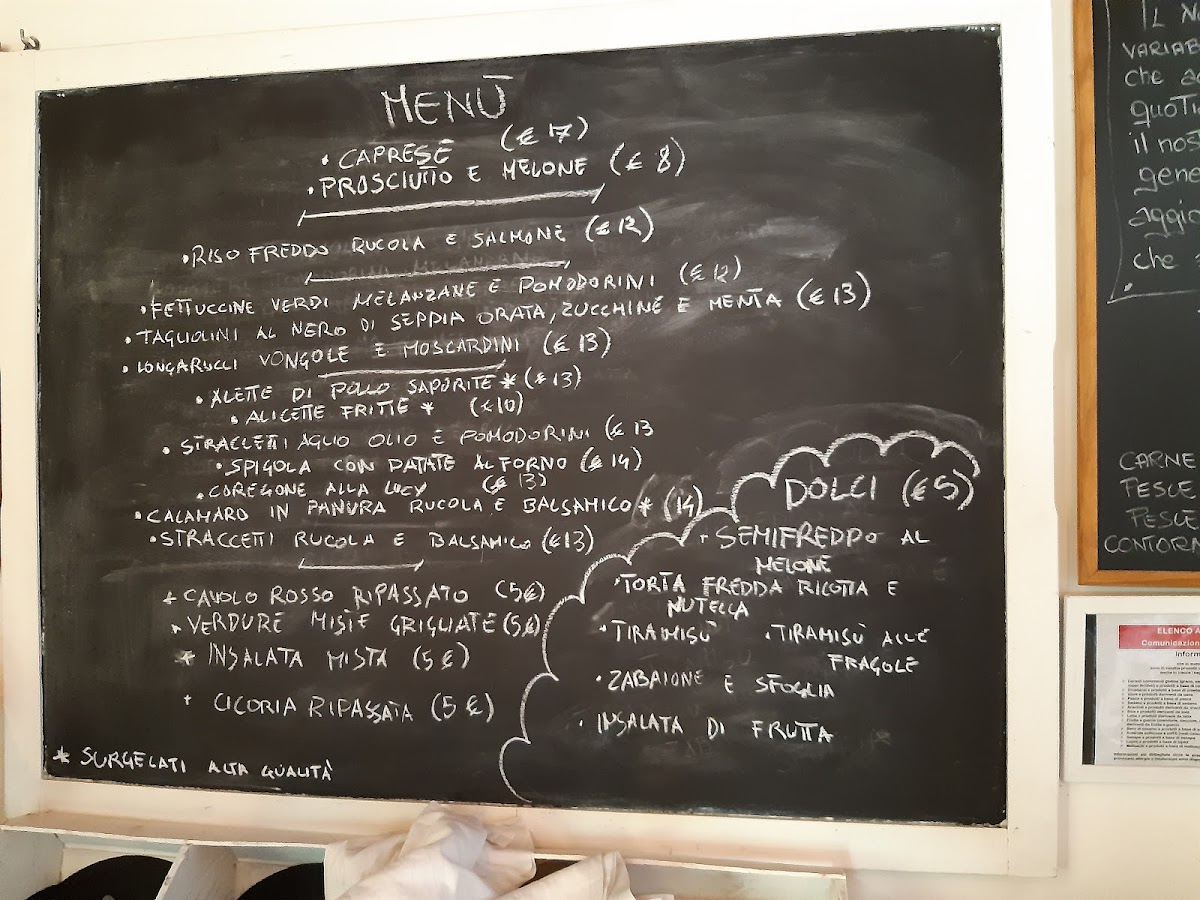 MENÙ
• CAPRESE (€ 17)
• PROSCIUTTO E MELONE (€ 8)
• RISO FREDDO RUCOLA E SALMONE (€ 12)
• FETTUCCINE VERDI MELANZANE E POMODORINI (€ 12)
• TAGLIOLINI AL NERO DI SEPPIA ORATA, ZUCCHINE E MENTA (€ 13)
• LONGARUCCI VONGOLE E MOSCARDINI (€ 13)
• ALETTE DI POLLO SAPORITE * (€ 13)
• ALICETTE FRITTE * (€ 10)
• STRACCETTI AGLIO OLIO E POMODORINI (€ 13
• SPIGOLA CON PATATE AL FORNO (€ 14)
• COREGONE ALLA LUCY (€ 13)
• CALAMARO IN PANURA RUCOLA E BALSAMICO * (14)
• STRACCETTI RUCOLA E BALSAMICO (€ 13)
+ CAVOLO ROSSO RIPASSATO (5€)
• VERDURE MISTE GRIGLIATE (5€)
* INSALATA MISTA (5 €)
+ CICORIA RIPASSATA (5 €)
* SURGELATI ALTA QUALITÀ
DOLCI (€ 5)
• SEMIFREDDO AL
MELONE
• TORTA FREDDA RICOTTA E
NUTELLA
• TIRAMISÙ • TIRAMISÙ ALLE
FRAGOLE
• ZABAIONE E SFOGLIA
• INSALATA DI FRUTTA
IL
VARIAB
CHE
QUOTI
il nos
gene
aggio
che
CARNE
PESCE
PESCE
CONTORN
ELENCO A
Comunicazion
Inform